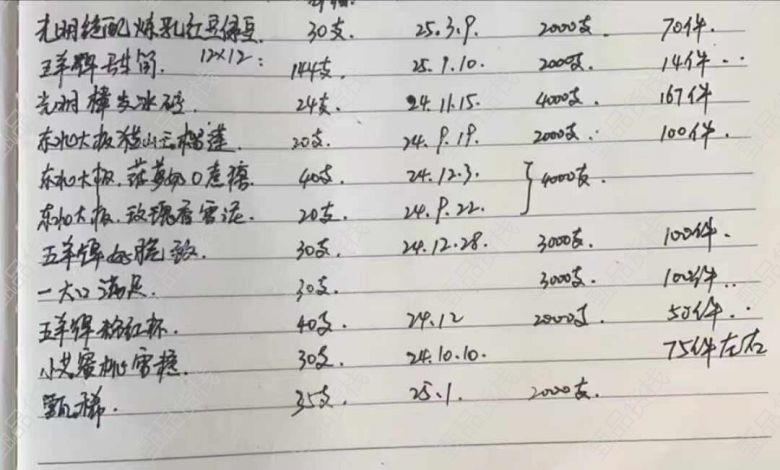 光明绝配炼乳红豆绿豆 30支. 25.3.9. 2000支. 70件.
五羊牌 12×12: 144支. 25.1.10. 2000支. 14件..
光明 冰砖. 24支. 24.11.15. 4000支. 167件
东北大板猫山王榴莲. 20支. 24.9.19. 2000支. 100件.
东北大板. 40支. 24.12.3. 4000支.
东北大板.玫瑰香雪泥. 20支. 24.9.22.
五羊牌 脆 30支. 24.12.28. 3000支. 100件.
一大口满足. 30支. 3000支. 100件..
五羊牌粉红杯. 40支. 24.12 2000支. 50件..
蜜桃雪糕. 30支. 24.10.10. 75件左右
甄稀. 35支. 25.1. 2000支.